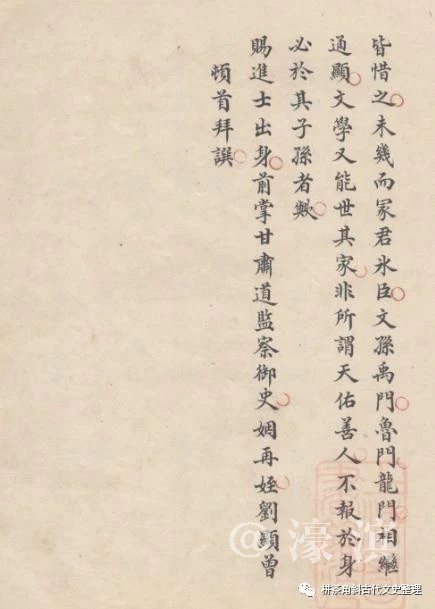 皆惜之未幾而冢君氷臣文孫禹門魯門龍門相繼
通顯文學又能世其家非所謂天佑善人不報於身
必於其子孫者歟
賜進士出身前掌甘肅道監察御史姻再姪劉顯曾
頓首拜譔
@濠滨
栟茶角斜古代文史整理